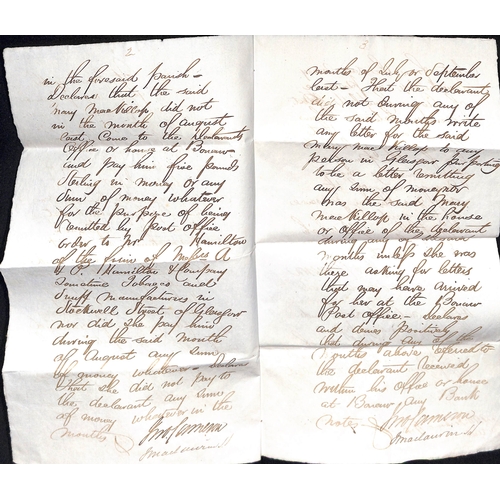 2
in the foresaid parish —
Declares that the said
Mary MacKillop did not
in the month of August
last come to the Declarant's
Office or house at Bonaw
and pay him five pounds
Sterling in money or any
Sum of money whatever
for the purpose of being
remitted by Post Office
order to Mr Hamilton
of the firm of Messrs A
Hamilton & Company
Sometime Tobacco and
Snuff Manufacturers in
Stockwell Street of Glasgow
nor did she pay him
during the said month
of August any sum
of money whatever — Declares
that she did not pay to
the declarant any sum
of money whatever in the
months
Cameron
3
months of July or September
last — That the declarant
did not during any of
the said months write
any letter for the said
Mary MacKillop to any
person in Glasgow purporting
to be a letter remitting
any sum of money nor
was the said Mary
MacKillop in the house
or office of the declarant
during any of
months unless she was
there asking for letters
that may have arrived
for her at the Bonaw
Post Office — Declares
and denies positively
that during any of the
months above referred to
the declarant received
within his office or house
at Bonaw any Bank
notes —
Cameron